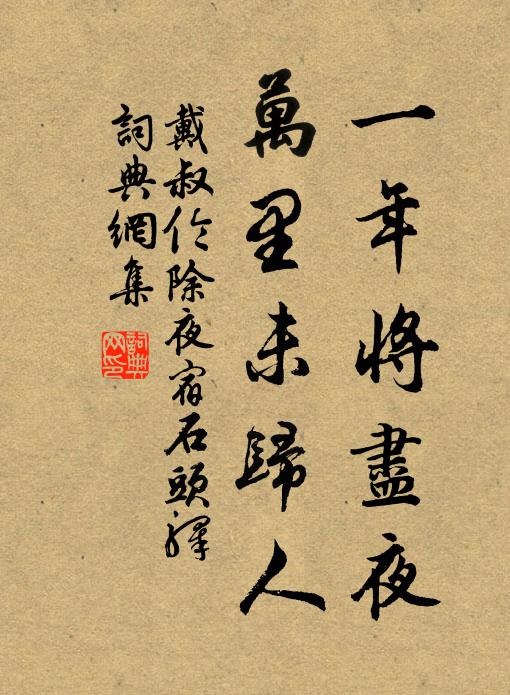 一年將盡夜
萬里未歸人
戴叔伦除夜宿石頭驛
詞典網集
詞典網印